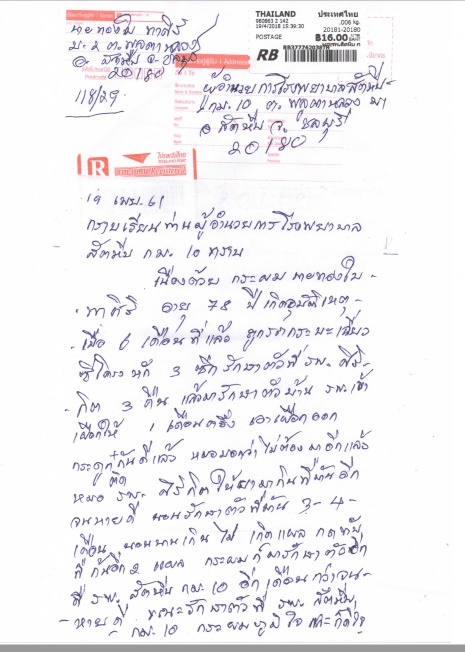 THAILAND ประเทศไทย
980863 2 142 .006 kg.
19/4/2018 15:39:30 20181-20180
POSTAGE ฿16.00
RB
นายทองใบ ทาศิริ
ม.๖ ต.พลูตาหลวง
อ. สัตหีบ จ. ชลบุรี
20180
118/29
ผู้อำนวยการโรงพยาบาลสัตหีบ
กม.10 ต. พลูตาหลวง
อ สัตหีบ จ. ชลบุรี
20180
R
ไปรษณีย์ไทย
THAILAND POST
19 เมษ. 61
กราบเรียนท่านผู้อำนวยการโรงพยาบาล
สัตหีบ กม. 10 ทราบ
เนื่องด้วย กระผม นายทองใบ -
- ทาศิริ อายุ 78 ปี เกิดอุบัติเหตุ -
- เมื่อ 6 เดือนที่แล้ว ถูกรถกระบะเฉี่ยว
ซี่โครงหัก 3 ซี่ รักษาตัวที่ รพ. สิริ -
- กิต 3 คืน แล้วมารักษาตัวบ้าน รพ. เข้า
เฝือกให้ 1 เดือนครึ่ง เอาเฝือกออก
กระดูกติดกันดีแล้ว หมอบอกว่าไม่ต้องมาอีกแล้ว
หมอ รพ. สิริกิตให้ยามากินที่บ้านอีก
จนหายดี นอนรักษาตัวที่บ้าน 3-4-
เดือน นอนนานเกินไป เกิดแผลกดทับ
ที่ก้นอีก 2 แผล กระผมก็มารักษาตัวอีก
ที่ รพ. สัตหีบ กม. 10 อีกเดือนกว่าจน -
- หายดี ขณะรักษาตัวที่ รพ. สัตหีบ
- กม. 10 กระผมภูมิใจ